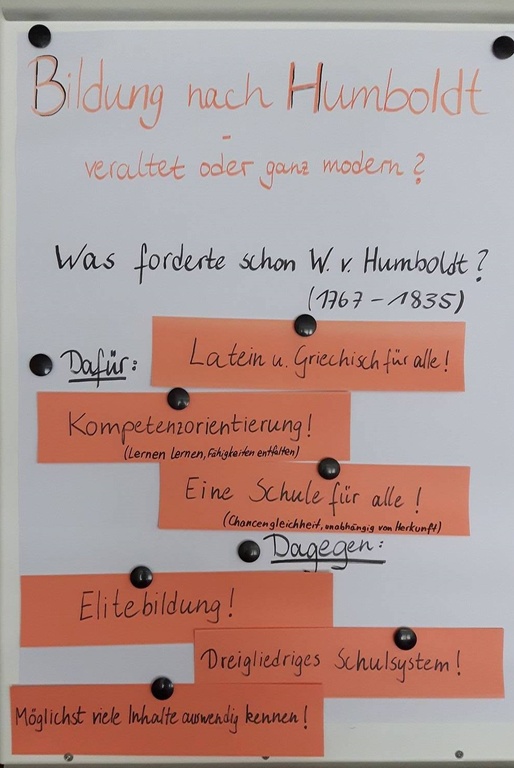 Bildung nach Humboldt
-
veraltet oder ganz modern?
Was forderte schon W. v. Humboldt?
(1767-1835)
Dafür:
Latein u. Griechisch für alle!
Kompetenzorientierung!
(Lernen Lernen, Fähigkeiten entfalten)
Eine Schule für alle!
(Chancengleichheit, unabhängig von Herkunft)
Dagegen:
Elitebildung!
Dreigliedriges Schulsystem!
Möglichst viele Inhalte auswendig kennen!